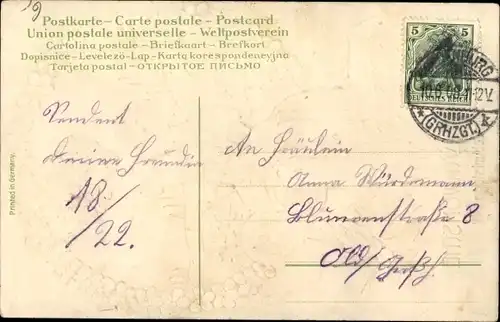 Postkarte – Carte postale – Postcard
Union postale universelle – Weltpostverein
Cartolina postale – Briefkaart – Brefkort
Dopisnice – Levelező-Lap – Karta korespondencyjna
Tarjeta postal – ОТКРЫТОЕ ПИСЬМО
5 5
DEUTSCHES REICH
BURG
12V.
*(GRHZGT.)*
Sendent
Deine Freundin
18/22.
An Fräulein
Anna Würdemann
Blumenstraße 8
Old/
Printed in Germany.